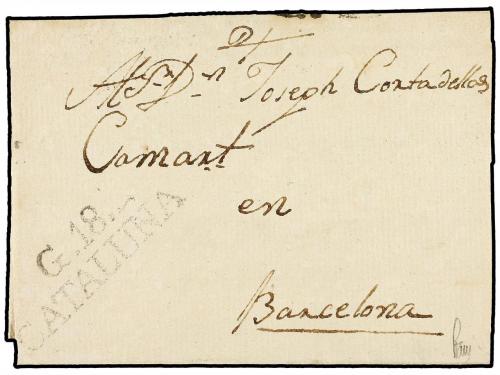 Al Sr. Dn. Joseph Cortadellas
Camart.
en
Barcelona
G.18.
CATALUÑA